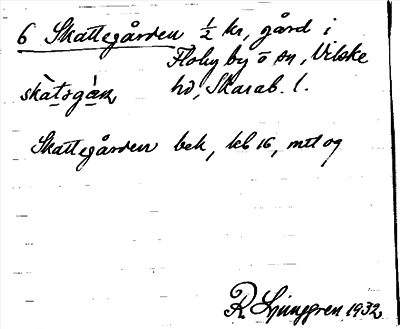 6 Skattegården ½ kr, gård i
Floby by o sn, Vilske
skàtsgàn, hd, Skarab. l.
Skattegården bek, kb 16, mtl og
R. Ljunggren 1932